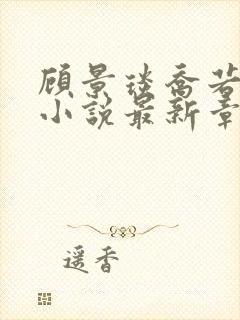 顾景琰乔若
小说最新章
遥香